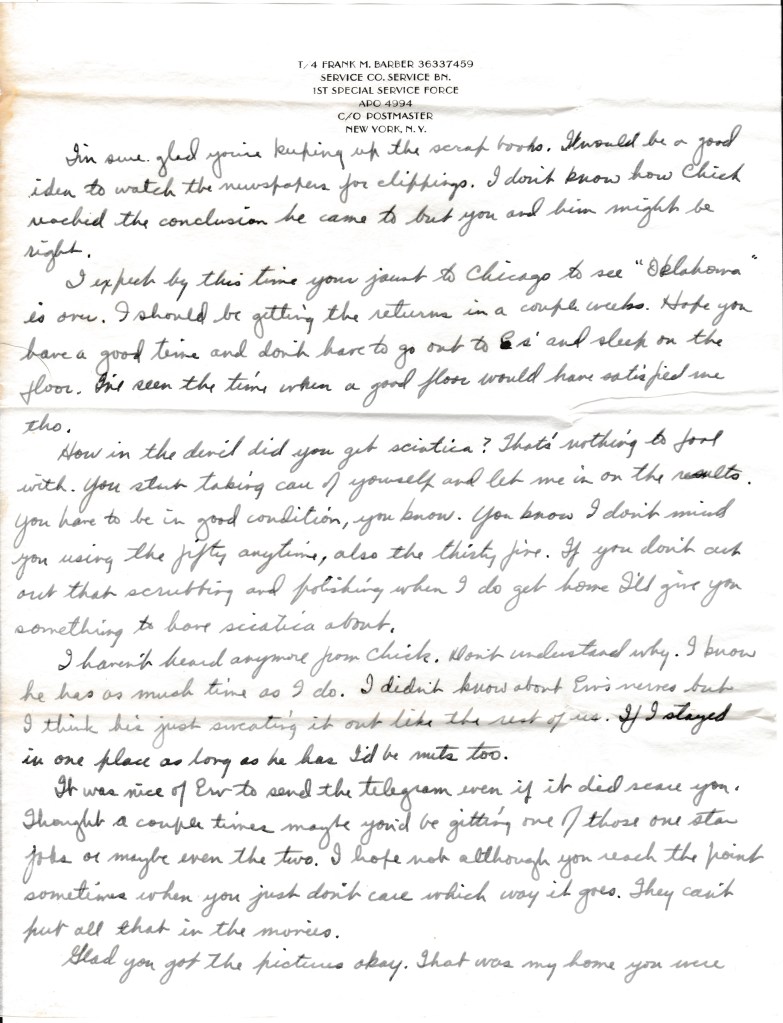 T/4 FRANK M. BARBER 36337459
SERVICE CO. SERVICE BN.
1ST SPECIAL SERVICE FORCE
APO 4994
C/O POSTMASTER
NEW YORK, N. Y.
I'm sure glad you're keeping up the scrap books. It would be a good
idea to watch the newspapers for clippings. I don't know how Chick
reached the conclusion he came to but you and him might be
right.
I expect by this time your jaunt to Chicago to see "Oklahoma"
is over. I should be getting the returns in a couple weeks. Hope you
have a good time and don't have to go out to s' and sleep on the
floor. I've seen the time when a good floor would have satisfied me
tho.
How in the devil did you get sciatica? That's nothing to fool
with. You start taking care of yourself and let me in on the results.
You have to be in good condition, you know. You know I don't mind
you using the fifty anytime, also the thirty five. If you don't cut
out that scrubbing and polishing when I do get home I'll give you
something to have sciatica about.
I haven't heard anymore from Chick. Don't understand why. I know
he has as much time as I do. I didn't know about Erv's nerves but
I think he's just sweating it out like the rest of us. If I stayed
in one place as long as he has I'd be nuts too.
It was nice of Erv to send the telegram even if it did scare you.
Thought a couple times maybe you'd be getting one of those one star
jobs or maybe even the two. I hope not although you reach the point
sometimes when you just don't care which way it goes. They can't
put all that in the movies.
Glad you got the pictures okay. That was my home you were